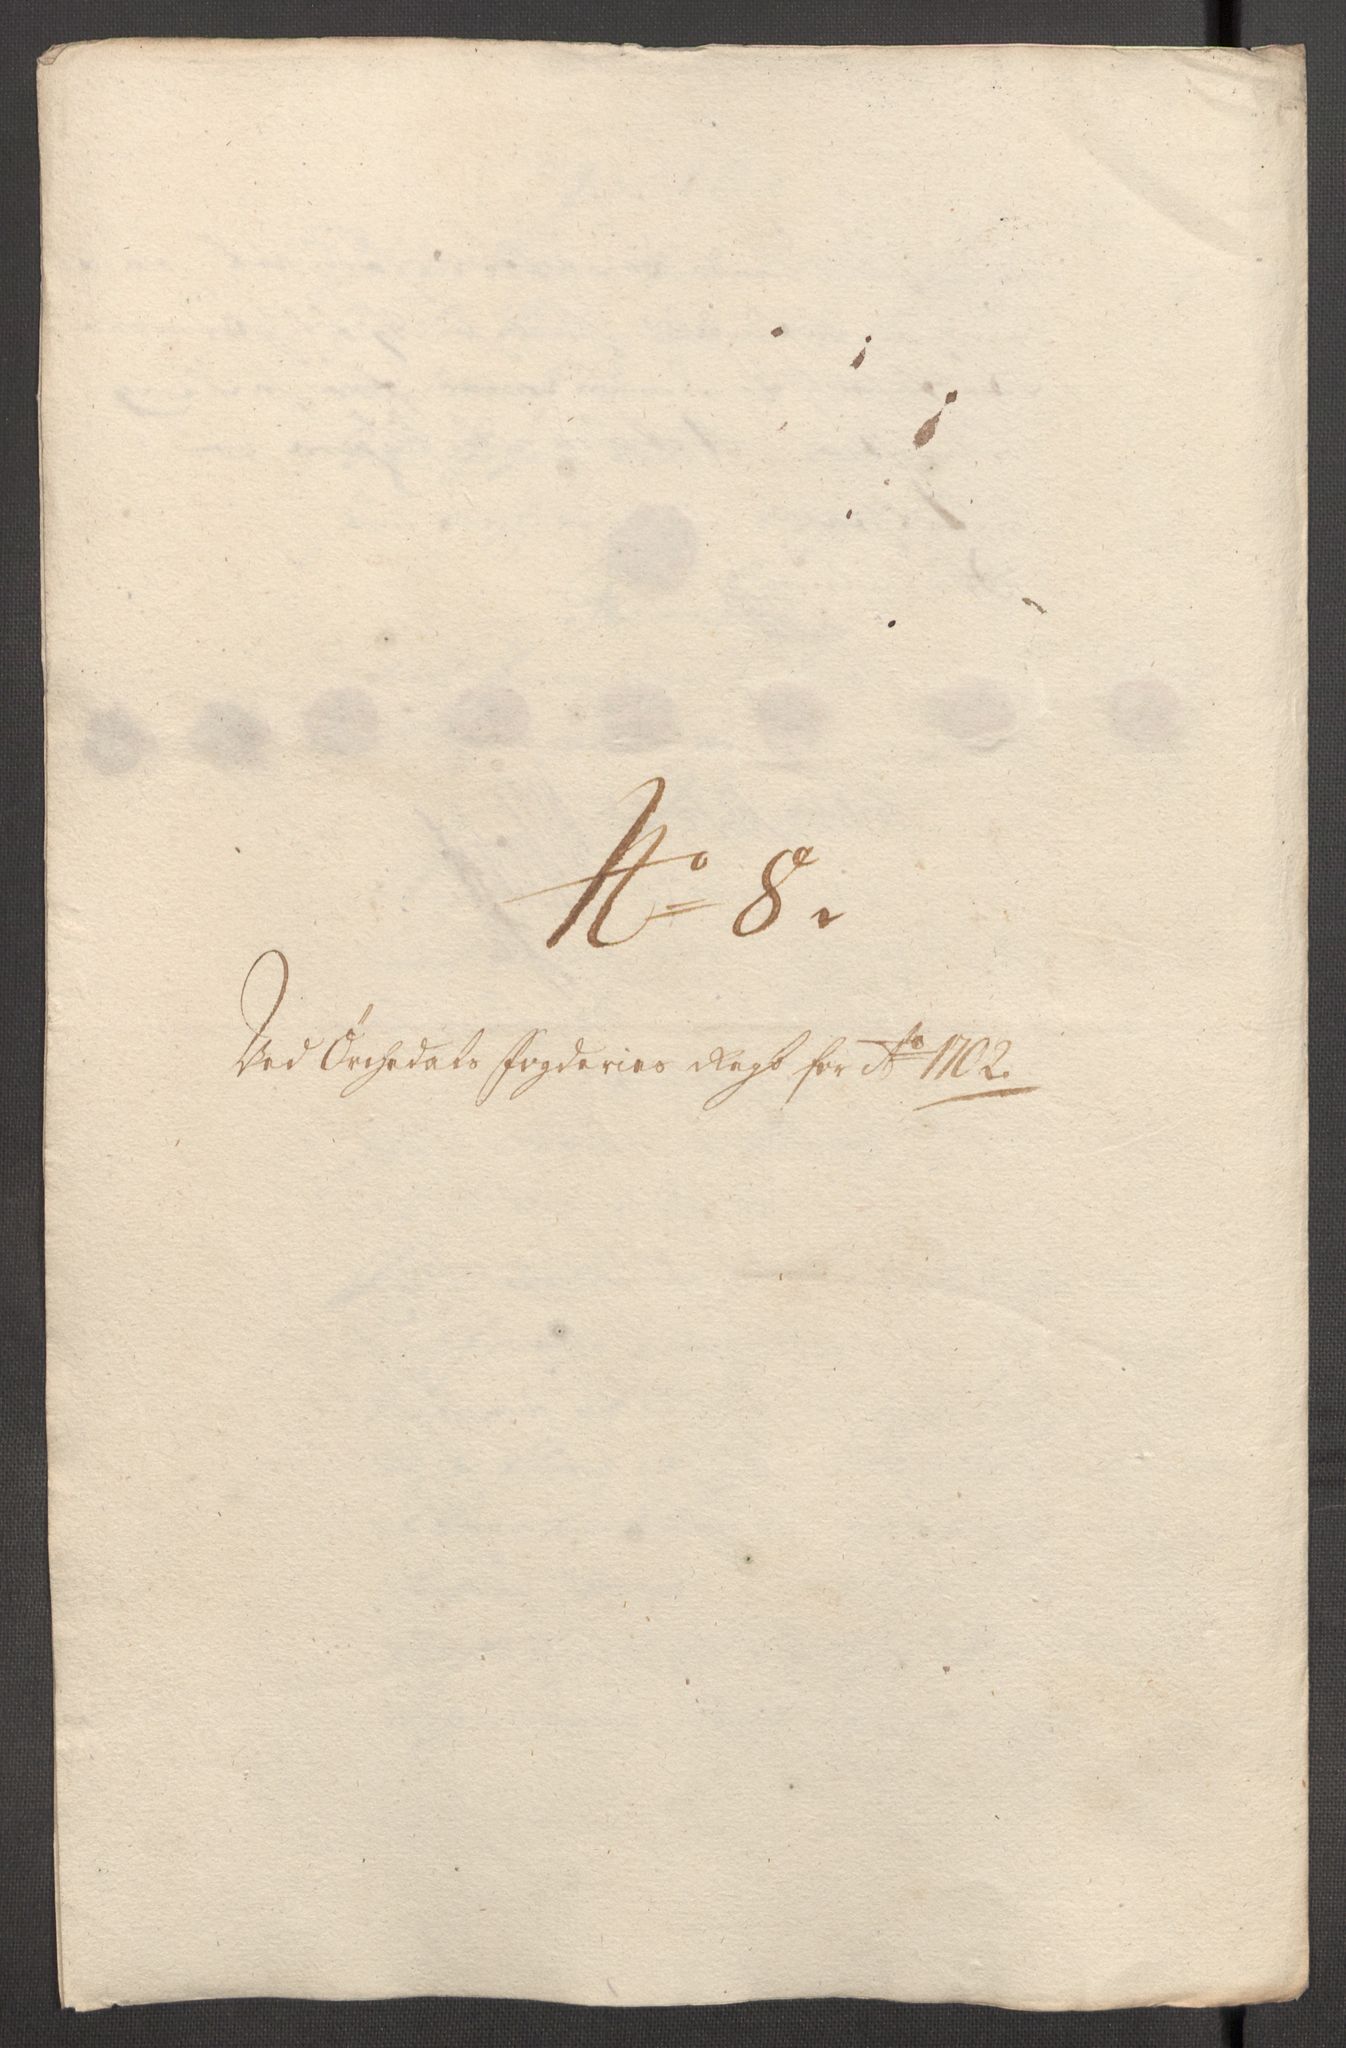 No 8.
Ved Örchedals fogderies Regb for Ao 1702.